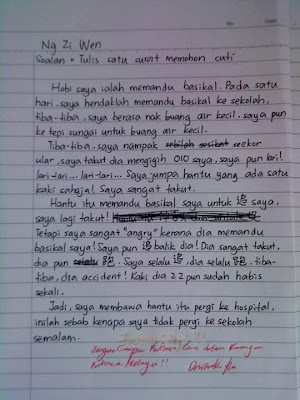 No.
Date
Ng Zi Wen
Soalan = Tulis satu surat memohon cuti
Hobi saya ialah memandu basikal. Pada satu
hari, saya hendaklah memandu basikal ke sekolah,
tiba-tiba, saya berasa nak buang air kecil, saya pun
ke tepi sungai untuk buang air kecil.
Tiba-tiba, saya nampak seekor
ular, saya takut dia mengigih OIO saya, saya pun lari!
lari-lari... lari-lari... Saya jumpa hantu yang ada satu
kaki sahaja! Saya sangat takut.
Hantu itu memandu basikal saya untuk 追 saya,
saya lagi takut!
Tetapi saya sangat "angry" kerana dia memandu
basikal saya! Saya pun 追 balik dia! Dia sangat takut,
dia pun 跑. Saya selalu 追, dia selalu 跑, tiba-
tiba, dia accident! Kaki dia 22 pun sudah habis
sekali.
Jadi, saya membawa hantu itu pergi ke hospital,
inilah sebab kenapa saya tidak pergi ke sekolah
semalam.
Jangan Campur Bahasa Cina dalam Karangan
Bahasa Melayu!!